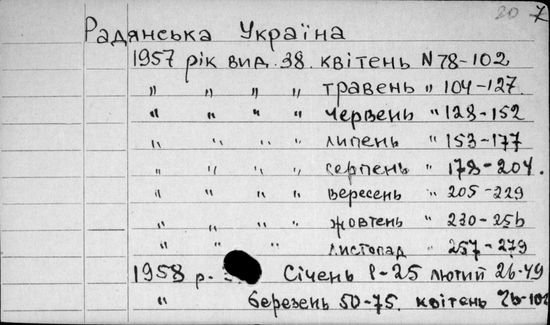 20 7
Радянська Україна
1957 рік вид. 38. квітень N 78-102
" " " " травень " 104-127.
" " " " червень " 128-152
" " " " липень " 153-177
" " " " серпень " 178-204.
" " " " вересень " 205-229
" " " " жовтень " 230-256
" " " листопад " 257-279
1958 р. Січень 1-25 лютий 26-49
" березень 50-75. квітень 76-102